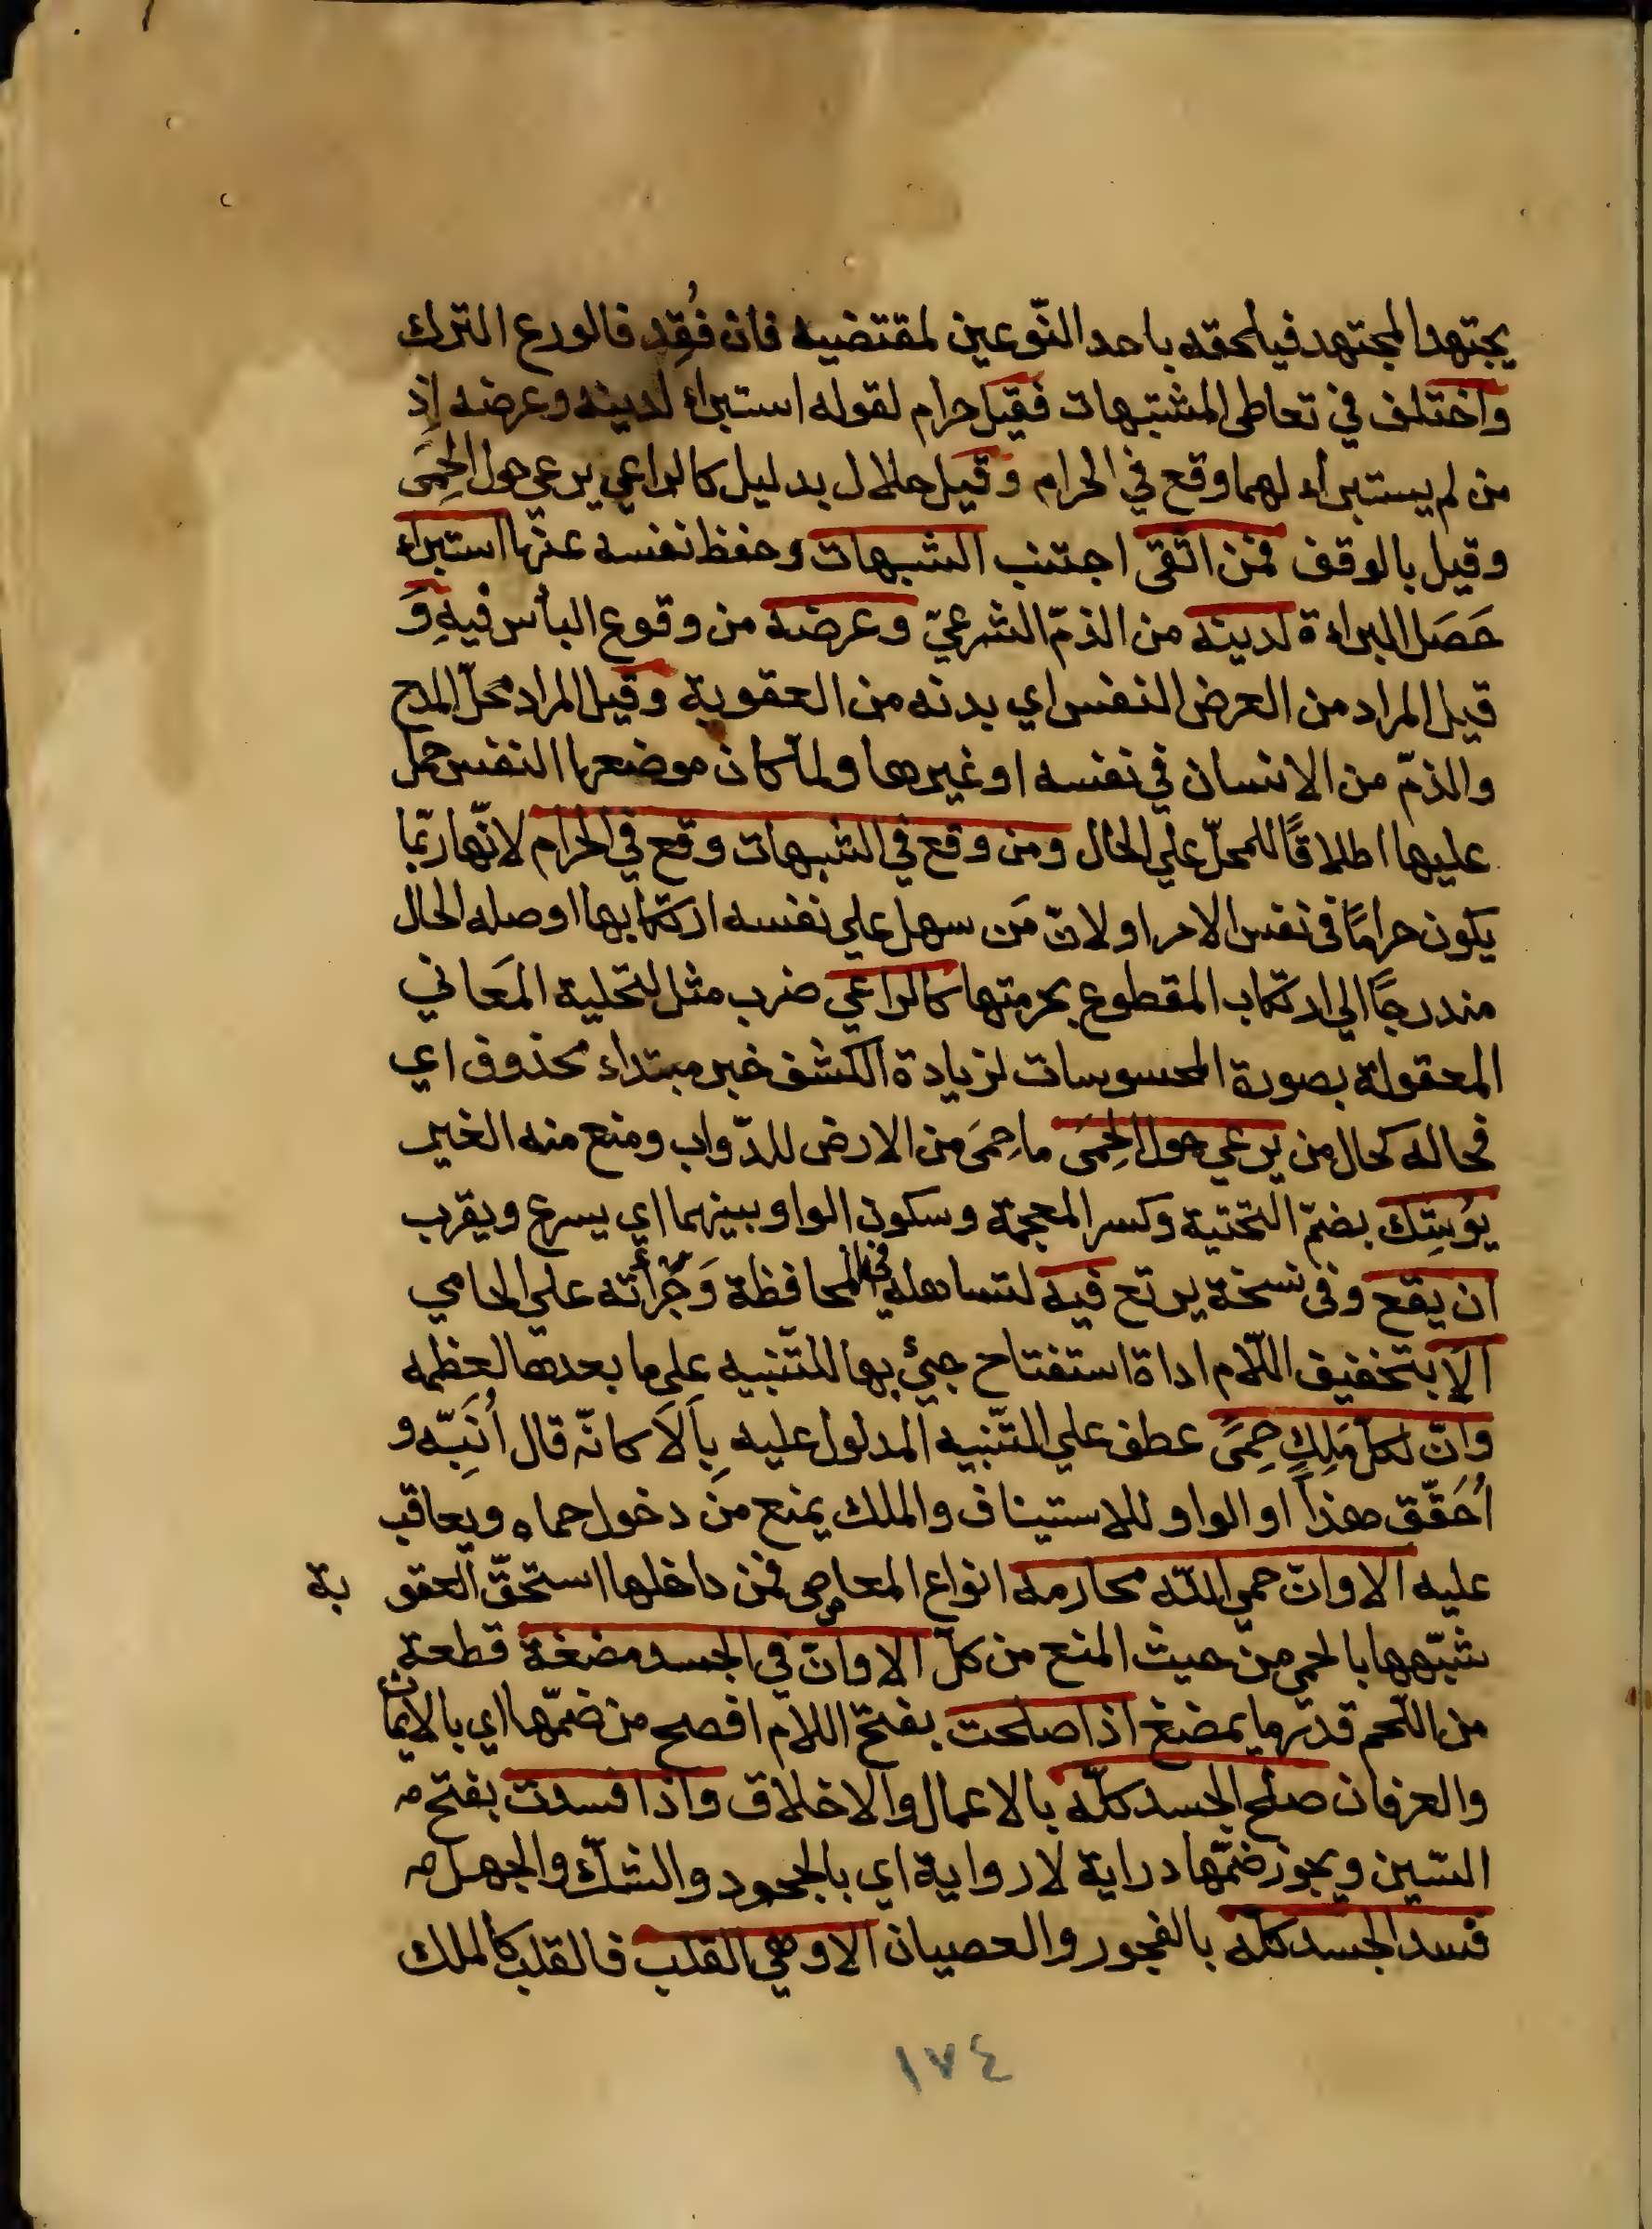 يجتهد المجتهد فيلحقه باحد النّوعين لمقتضيه فان فُقِد فالورع الترك
واختلف في تعاطى المشتبهات فقيل حرام لقوله استبراء لدينه وعرضه اذ
من لم يستبراء لهما وقع في الحرام وقيل حلال بدليل كالراعي يرعي حول الحِمَى
وقيل بالوقف فمن اتقى اجتنب الشبهات وحفظ نفسه عنها استبراء
حَصَل البراءة لدينه من الذمّ الشرعيّ وعرضه من وقوع الباس فيهِ وَ
قيل المراد من العرض النفس اي بدنه من العقوبة وقيل المراد محلّ المدح
والذمّ من الانسان في نفسه او غيرها ولمّا كان موضعها النفس حمل
عليها اطلاقًا للمحلّ علي الحال ومن وقع في الشبهات وقع في الحرام لانّها ربّما
يكون حرامًا فى نفس الامر او لانّ مَن سهل علي نفسه ارتكابها اوصله الحال
مندرجًا الي ارتكاب المقطوع بحرمتها كالراعي ضرب مثل لتحلية المَعاني
المعقولة بصورة المحسوسات لزيادة الكشف خبر مبتداء محذوف اي
فحاله كحال من يرعي حول الحِمَى ما حِمَى من الارض للدّواب ومنع منه الغير
يوُشِك بضمّ التحتية وكسر المعجمة وسكون الواو بينهما اي يسرع ويقرب
ان يقع وفى نسخة يرتع فيه لتساهله في المحافظة وَجُرأته علي الحامي
اَلَا بتخفيف اللّام اداة استفتاح جيئ بها للتّنبيه علي ما بعدها لعظمه
وانّ لكلّ مَلِكٍ حِمَىً عطف علي التّنبيه المدلول عليه بِاَلَا كانّه قال اُنَبِّه و
اُحَقّق هذا او الواو للاستيناف والملك يمنع من دخول حماه ويعاقب
عليه الا وانّ حمي اللّه محارمه انواع المعاصى فمن داخلها استحقّ العقوبة
شبّهها بالحمى من حيث المنع من كلّ الا وانّ في الجسد مضغة قطعة
من اللّحم قدر ما يمضغ اذا صلحت بفتح اللام افصح من ضمّها اي بالايمان
والعرفان صلح الجسد كلّه بالاعمال والاخلاق واذا فسدت بفتح
السّين ويجوز ضمّها دراية لا رواية اي بالجحود والشكّ والجهل
فسد الجسد كلّه بالفجور والعصيان الا وهي القلب فالقلب كالملك
١٧٤